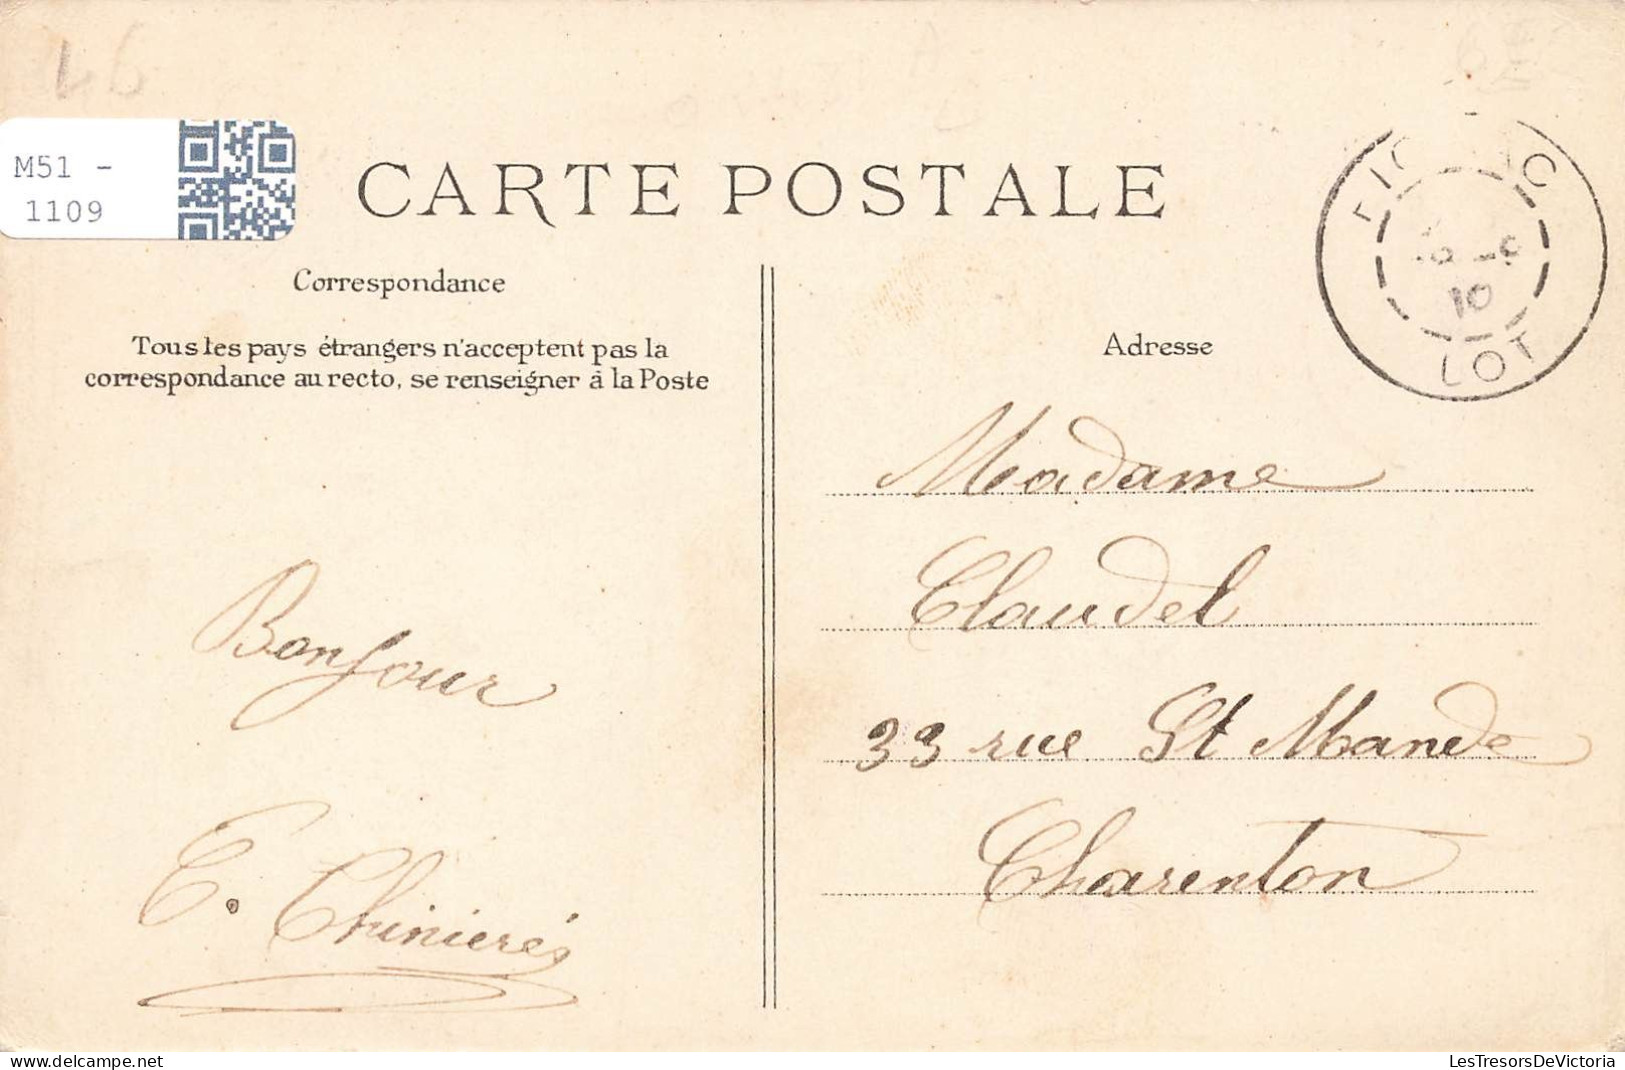 46
M51 -
1109
CARTE POSTALE
Correspondance
Tous les pays étrangers n'acceptent pas la
correspondance au recto, se renseigner à la Poste
Adresse
10
LOT
Madame
Claudel
33 rue St Mande
Charenton
Bonjour
E. Chinierés
LesTresorsDeVictoria